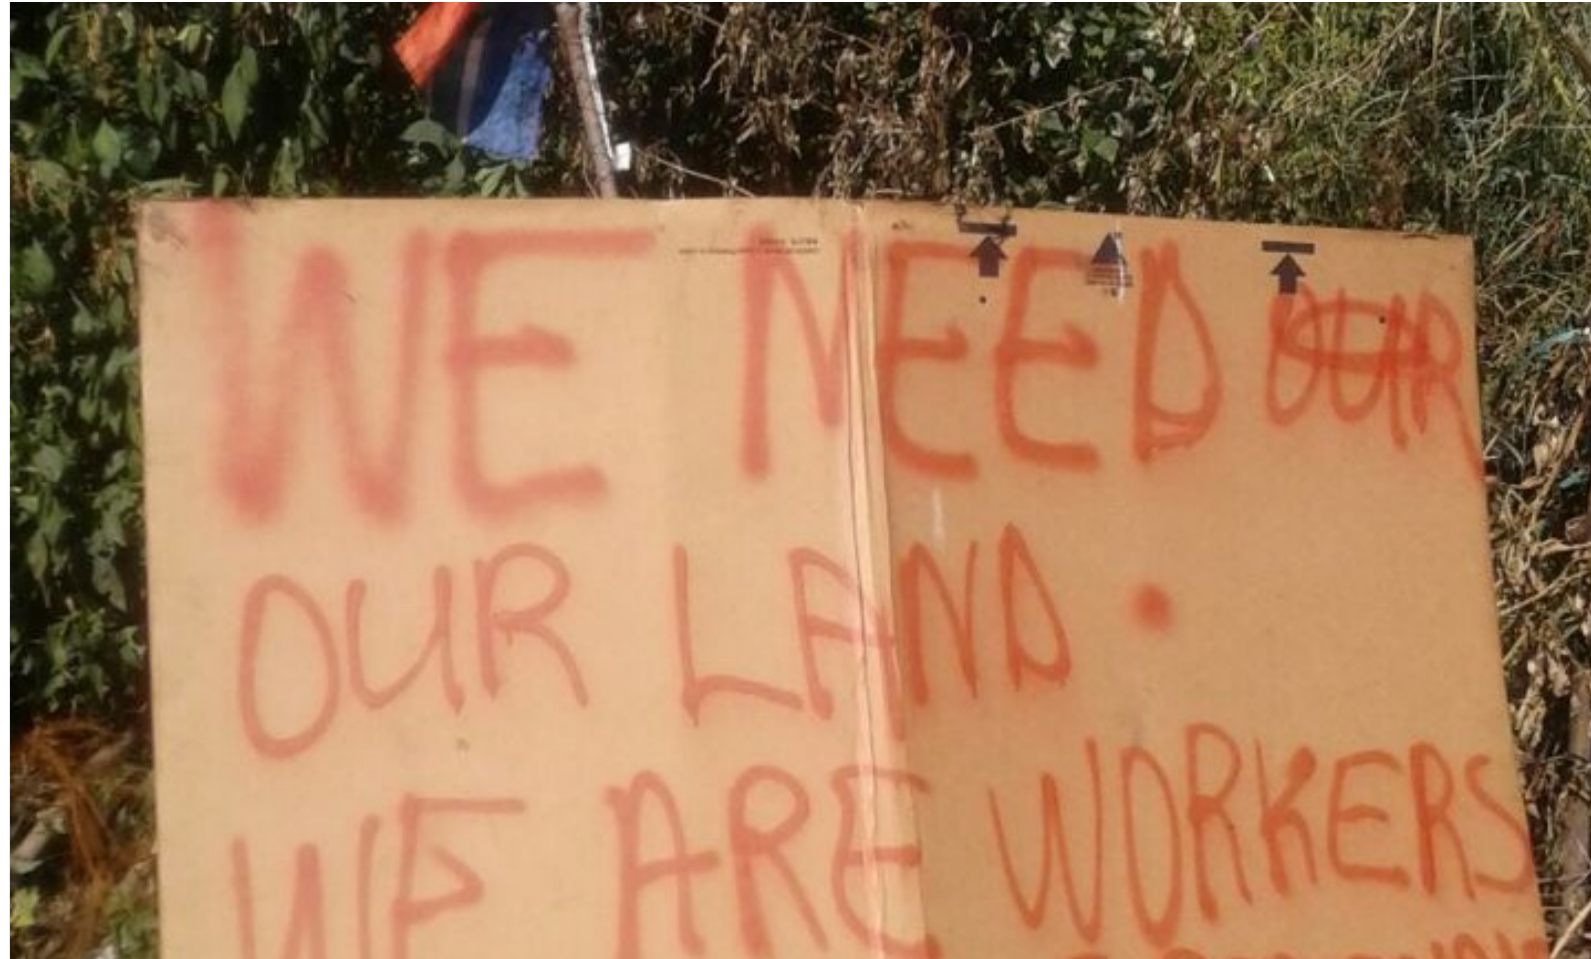 WE NEED OUR
OUR LAND.
WE ARE WORKERS